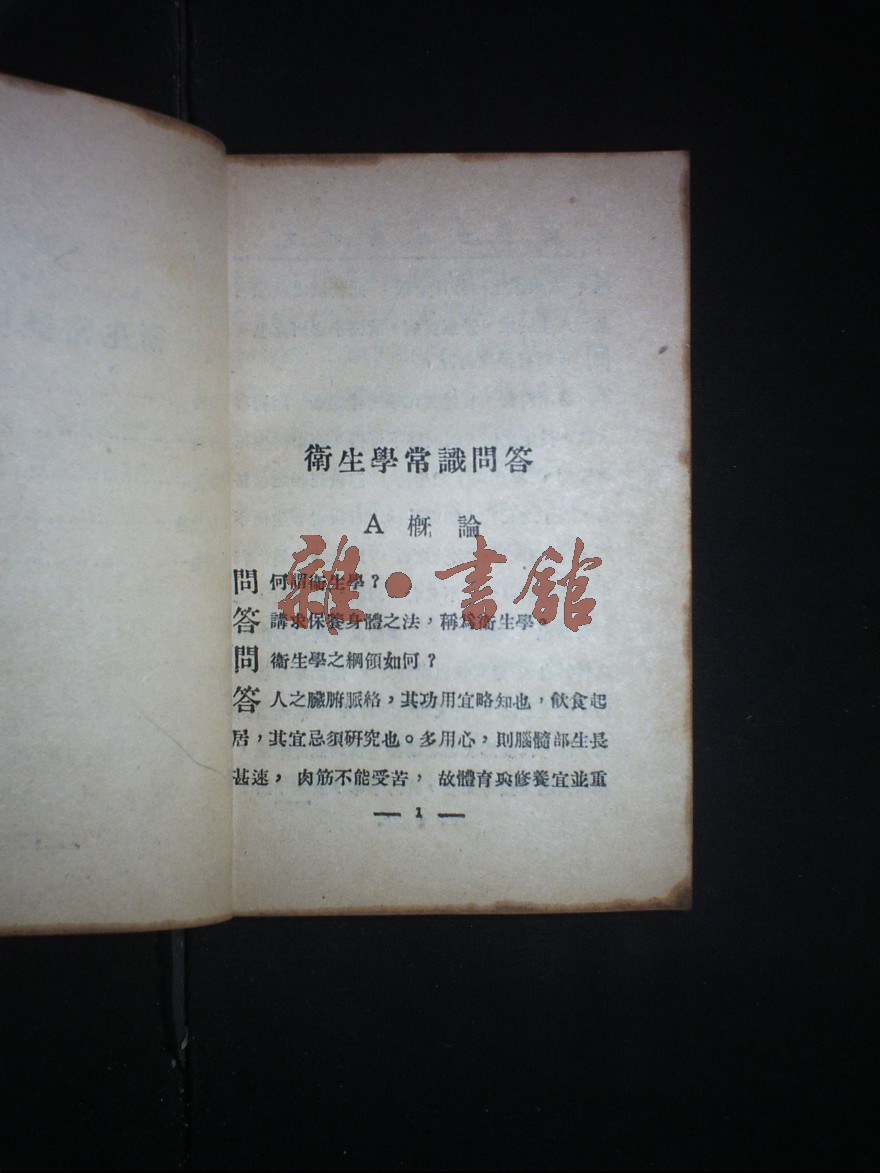 衛生學常識問答
A 概論
問 何謂衛生學？
答 講求保養身體之法，稱爲衛生學。
問 衛生學之綱領如何？
答 人之臟腑脈絡，其功用宜略知也，飲食起
居，其宜忌須硏究也。多用心，則腦髓部生長
甚速，肉筋不能受苦，故體育與修養宜並重
— 1 —
雜·書館